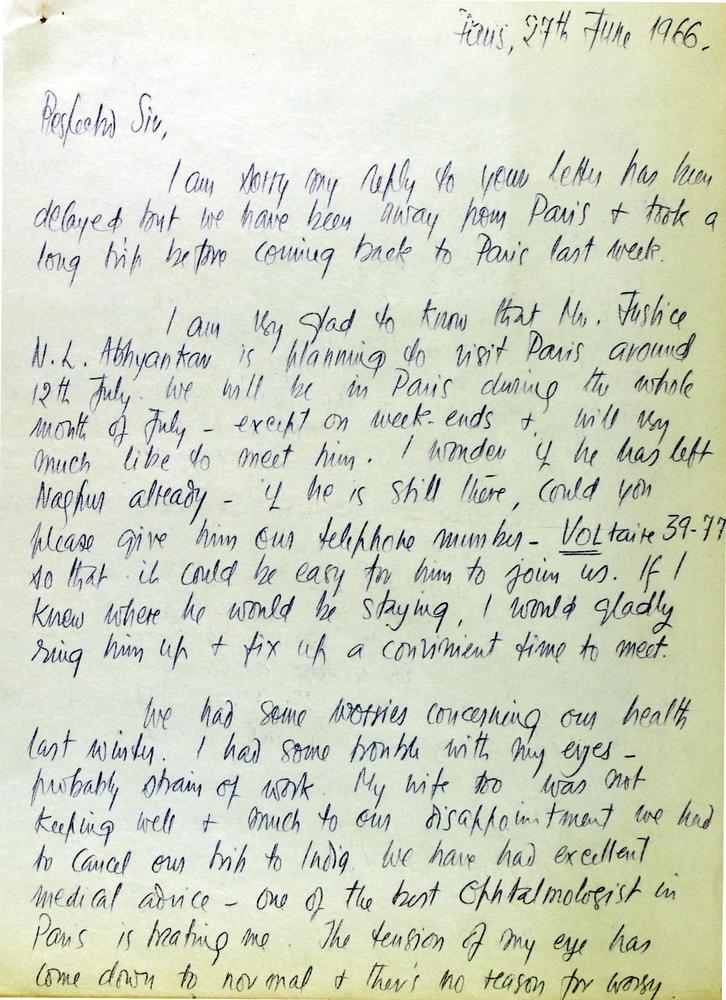 Paris, 27th June 1966.
Respected Sir,
I am sorry my reply to your letter has been
delayed but we have been away from Paris + took a
long trip before coming back to Paris last week.
I am very glad to know that Mr. Justice
N. L. Abhyankar is planning to visit Paris around
12th July. We will be in Paris during the whole
month of July - except on week-ends + will very
much like to meet him. I wonder if he has left
Nagpur already - if he is still there, could you
please give him our telephone number - VOLtaire 39-77
so that it could be easy for him to join us. If I
knew where he would be staying, I would gladly
ring him up + fix up a convinient time to meet.
We had some worries concerning our health
last winter. I had some trouble with my eyes -
probably strain of work. My wife too was not
keeping well + much to our disappointment we had
to cancel our trip to India. We have had excellent
medical advice - one of the best Ophtalmologist in
Paris is treating me. The tension of my eye has
come down to normal + there's no reason for worry.